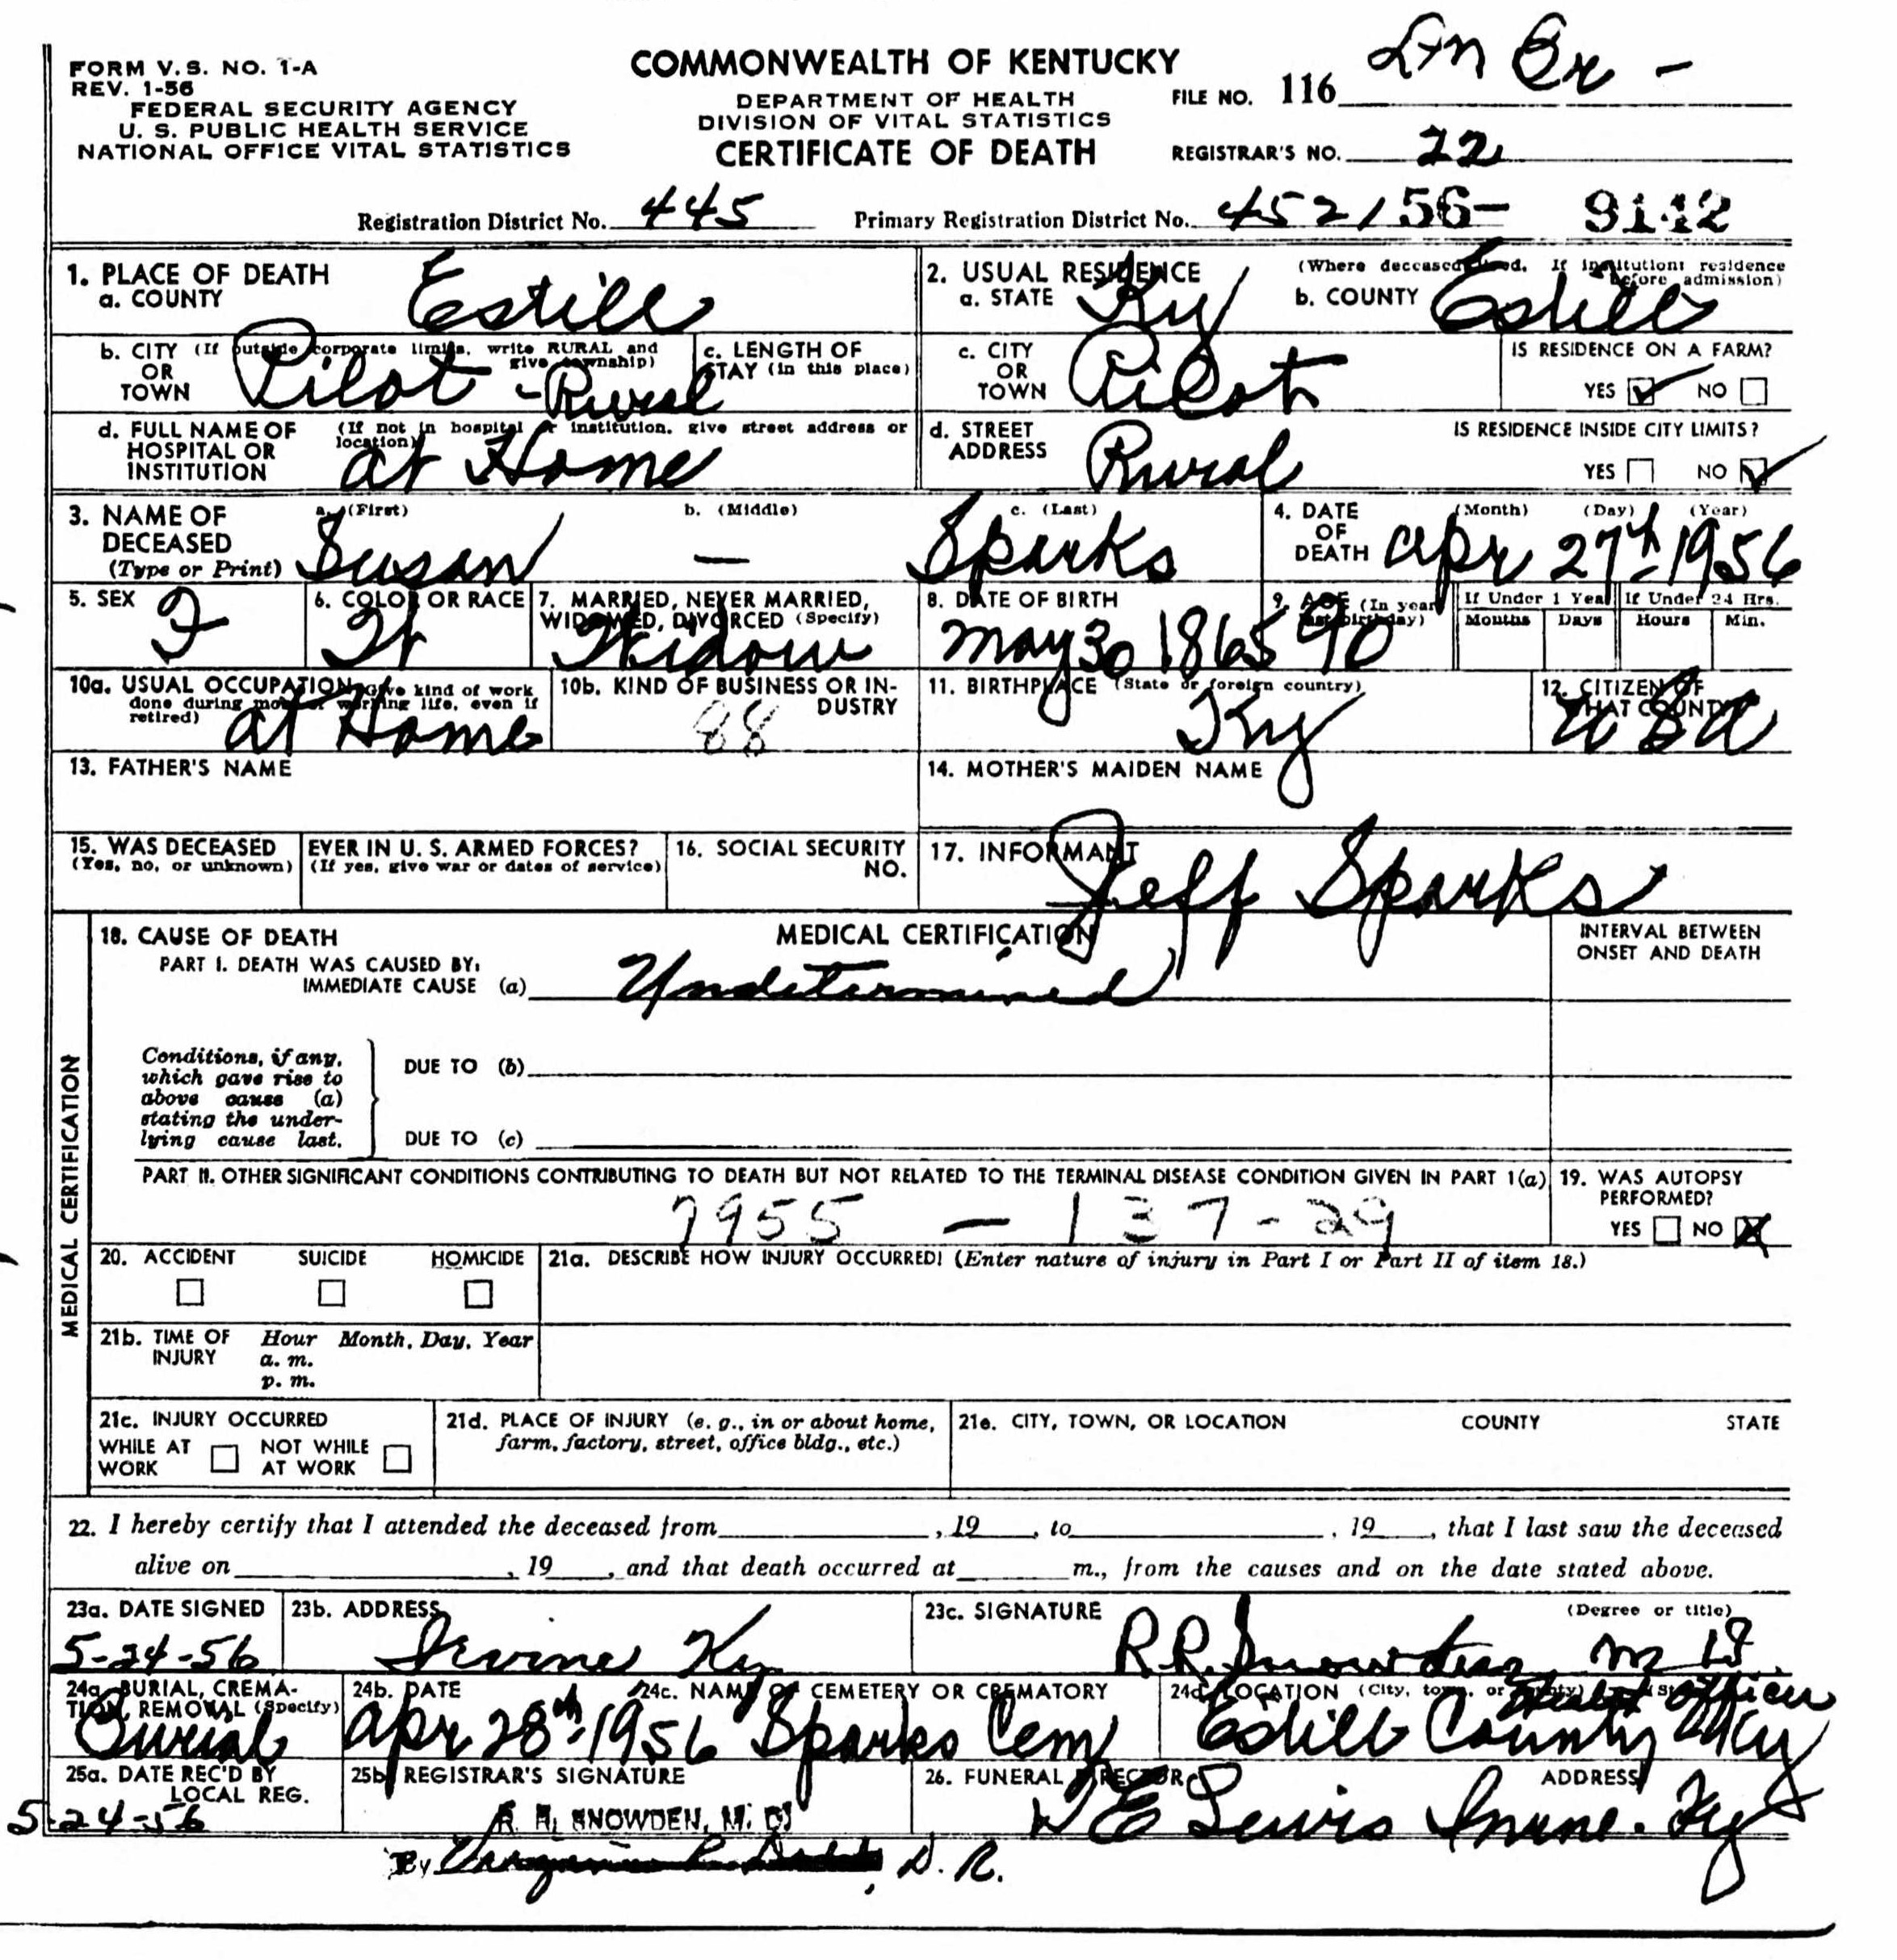 FORM V. S. NO. 1-A
REV. 1-56
FEDERAL SECURITY AGENCY
U. S. PUBLIC HEALTH SERVICE
NATIONAL OFFICE VITAL STATISTICS
COMMONWEALTH OF KENTUCKY
DEPARTMENT OF HEALTH
DIVISION OF VITAL STATISTICS
CERTIFICATE OF DEATH
FILE NO. 116
REGISTRAR'S NO. 22
Registration District No. 445 Primary Registration District No. 452/ 56- 9142
1. PLACE OF DEATH
a. COUNTY Estill
2. USUAL RESIDENCE (Where deceased lived. If institution: residence before admission)
a. STATE Ky b. COUNTY Estill
b. CITY (If outside corporate limits, write RURAL and give township)
OR
TOWN Pilot - Rural
c. LENGTH OF STAY (in this place)
c. CITY
OR
TOWN Pilot
IS RESIDENCE ON A FARM?
YES ✓ NO
d. FULL NAME OF HOSPITAL OR INSTITUTION (If not in hospital or institution, give street address or location)
at Home
d. STREET ADDRESS Rural
IS RESIDENCE INSIDE CITY LIMITS?
YES NO ✓
3. NAME OF DECEASED (Type or Print)
a. (First) b. (Middle) c. (Last)
Susan — Sparks
4. DATE OF DEATH (Month) (Day) (Year)
Apr 27th 1956
5. SEX F
6. COLOR OR RACE W
7. MARRIED, NEVER MARRIED, WIDOWED, DIVORCED (Specify)
Widow
8. DATE OF BIRTH
May 30 1865
9. AGE (In years last birthday) 90
If Under 1 Year If Under 24 Hrs.
Months Days Hours Min.
10a. USUAL OCCUPATION (Give kind of work done during most of working life, even if retired)
at Home
10b. KIND OF BUSINESS OR INDUSTRY
88
11. BIRTHPLACE (State or foreign country)
Ky
12. CITIZEN OF WHAT COUNTRY
USA
13. FATHER'S NAME
14. MOTHER'S MAIDEN NAME
15. WAS DECEASED EVER IN U. S. ARMED FORCES?
(Yes, no, or unknown) (If yes, give war or dates of service)
16. SOCIAL SECURITY NO.
17. INFORMANT
Jeff Sparks
MEDICAL CERTIFICATION
18. CAUSE OF DEATH MEDICAL CERTIFICATION
INTERVAL BETWEEN ONSET AND DEATH
PART I. DEATH WAS CAUSED BY:
IMMEDIATE CAUSE (a) Undetermined
Conditions, if any, which gave rise to above cause (a) stating the underlying cause last.
DUE TO (b)
DUE TO (c)
PART II. OTHER SIGNIFICANT CONDITIONS CONTRIBUTING TO DEATH BUT NOT RELATED TO THE TERMINAL DISEASE CONDITION GIVEN IN PART 1(a)
7955 — 137-29
19. WAS AUTOPSY PERFORMED?
YES NO X
20. ACCIDENT SUICIDE HOMICIDE
21a. DESCRIBE HOW INJURY OCCURRED! (Enter nature of injury in Part I or Part II of item 18.)
21b. TIME OF INJURY Hour Month, Day, Year
a. m.
p. m.
21c. INJURY OCCURRED
WHILE AT WORK NOT WHILE AT WORK
21d. PLACE OF INJURY (e. g., in or about home, farm, factory, street, office bldg., etc.)
21e. CITY, TOWN, OR LOCATION COUNTY STATE
22. I hereby certify that I attended the deceased from , 19 , to , 19 , that I last saw the deceased
alive on , 19 , and that death occurred at m., from the causes and on the date stated above.
23a. DATE SIGNED
5-24-56
23b. ADDRESS
Irvine Ky
23c. SIGNATURE (Degree or title)
R.R. Snowden, M D
Health Officer
24a. BURIAL, CREMATION, REMOVAL (Specify)
Burial
24b. DATE
Apr 28th-1956
24c. NAME OF CEMETERY OR CREMATORY
Sparks Cem
24d. LOCATION (City, town, or county) (State)
Estill County Ky
25a. DATE REC'D BY LOCAL REG.
5-24-56
25b. REGISTRAR'S SIGNATURE
R. R. SNOWDEN, M. D.
By Virginia , D. R.
26. FUNERAL DIRECTOR ADDRESS
E Lewis Irvine. Ky